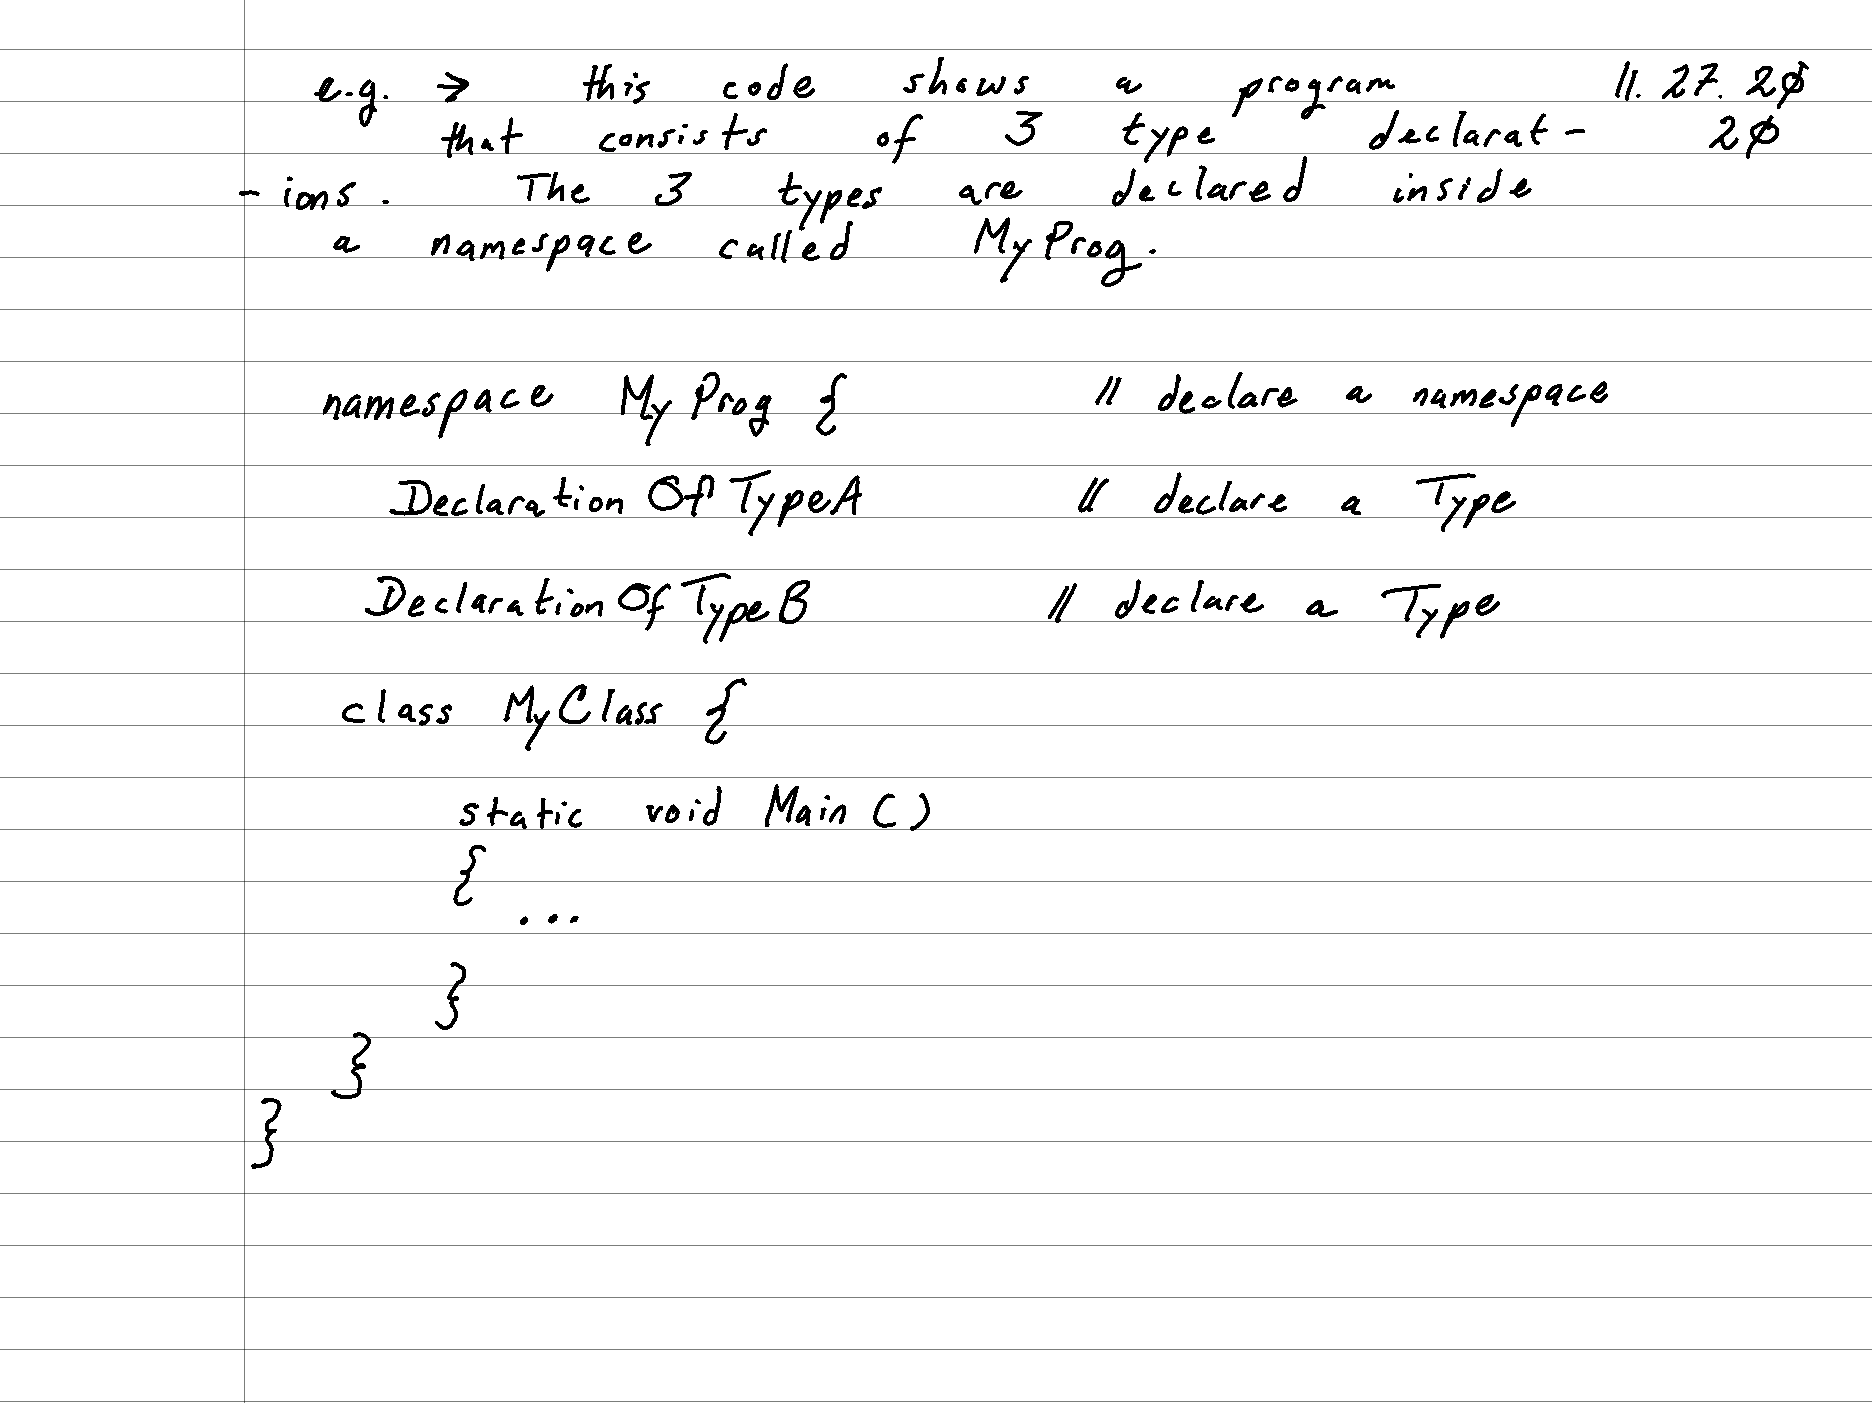 e.g. → this code shows a program 11.27.20
that consists of 3 type declarat- 20
-ions. The 3 types are declared inside
a namespace called MyProg.
namespace MyProg { // declare a namespace
DeclarationOfTypeA // declare a Type
DeclarationOfTypeB // declare a Type
class MyClass {
static void Main ()
{
...
}
}
}